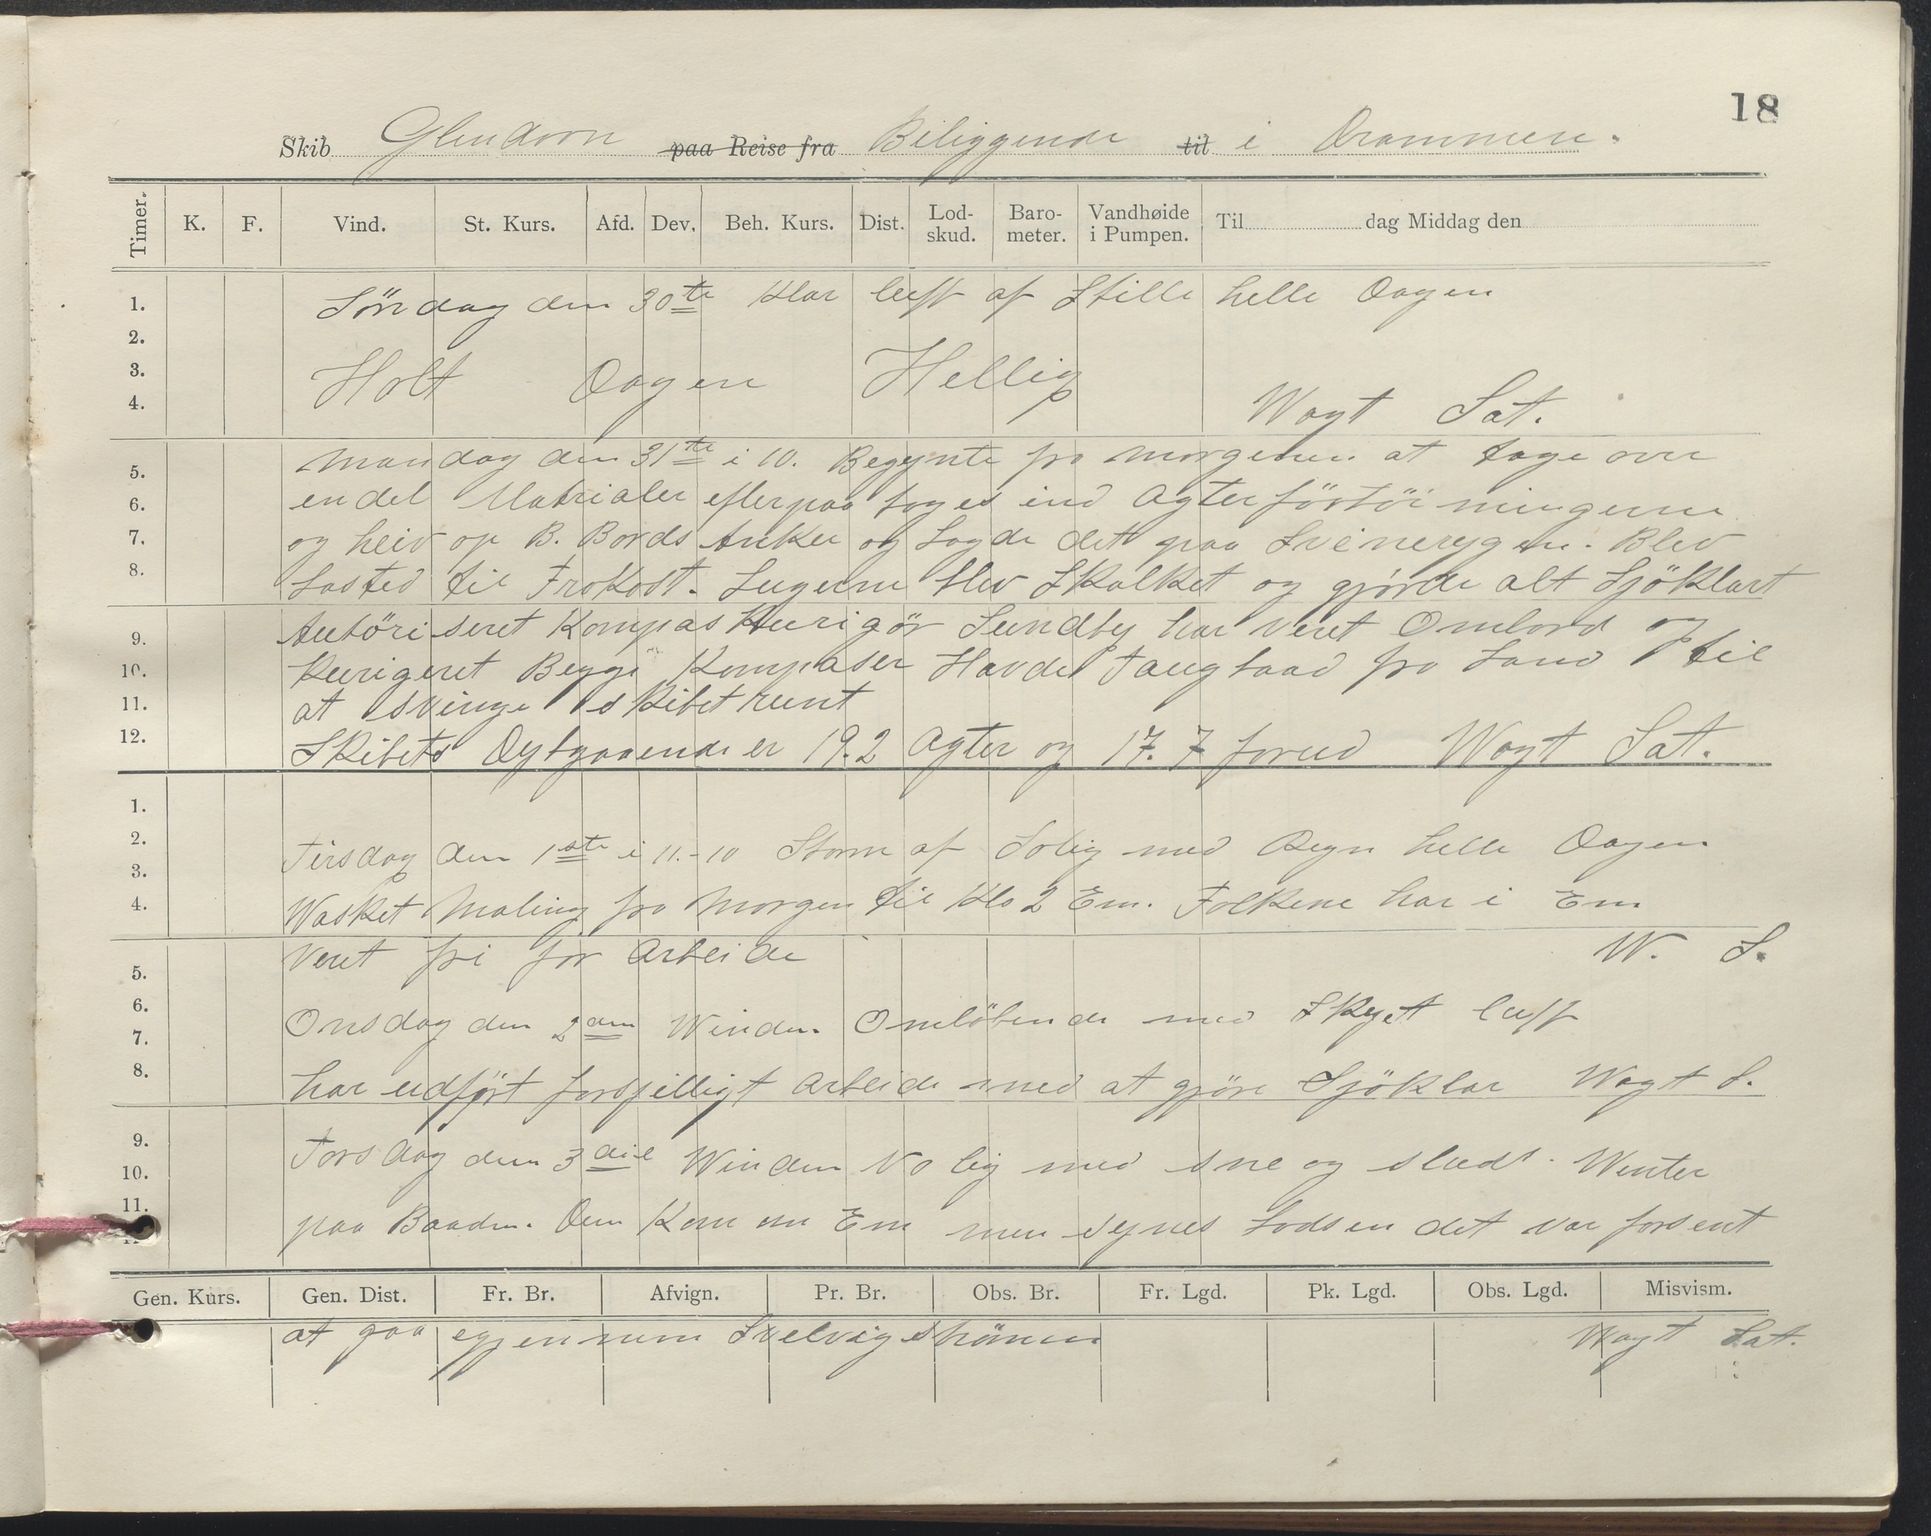 18
Skib Glendoon paa Reise fra Beliggende til i Drammen.
Timer. K. F. Vind. St. Kurs. Afd. Dev. Beh. Kurs. Dist. Lod-skud. Baro-meter. Vandhøide i Pumpen. Til dag Middag den
Söndag den 30te Klar luft af Stille helle Dagen
Holt Dagen Hellig
Wagt Sat.
Mandag den 31te i 10. Begynte fra morgenen at tage over
en del Matrialer efterpaa toges ind Agterförtöiningerne
og heiv op B. Bords Anker og Lagde det paa Svinerygen. Blev
Lasted til Frokost. Lugerne blev Skalket og gjörde alt Sjöklart
Autöriseret Kompas Kurigör Lundby har veret Ombord og
Kurigeret Begge Kompaser Havde Taugbaad fra Land til
at svinge skibet runt
Skibets Dybgaaende er 19.2 Agter og 17.7 forud Wagt Sat.
Tirsdag den 1ste i 11.-10 Storm af Solig med Regn helle Dagen
Wasket Maling fra Morgen til Klo 2 Em. Folkene har i Em
veret fri for Arbeide W. S.
Onsdag den 2den Winden Omlöbende med Skyet luft
har udfört forsjelligt Arbeide med at gjöre Sjöklar Wagt S.
Torsdag den 3die Winden Nolig med sne og sludd. Wenter
paa Baaden. Den Kom om Em men synes Lodsen det var forsent
1.
2.
3.
4.
5.
6.
7.
8.
9.
10.
11.
12.
1.
2.
3.
4.
5.
6.
7.
8.
9.
10.
11.
Gen. Kurs. Gen. Dist. Fr. Br. Afvign. Pr. Br. Obs. Br. Fr. Lgd. Pk. Lgd. Obs. Lgd. Misvism.
at gaa egjennem Svelvigströmen Wagt Sat.